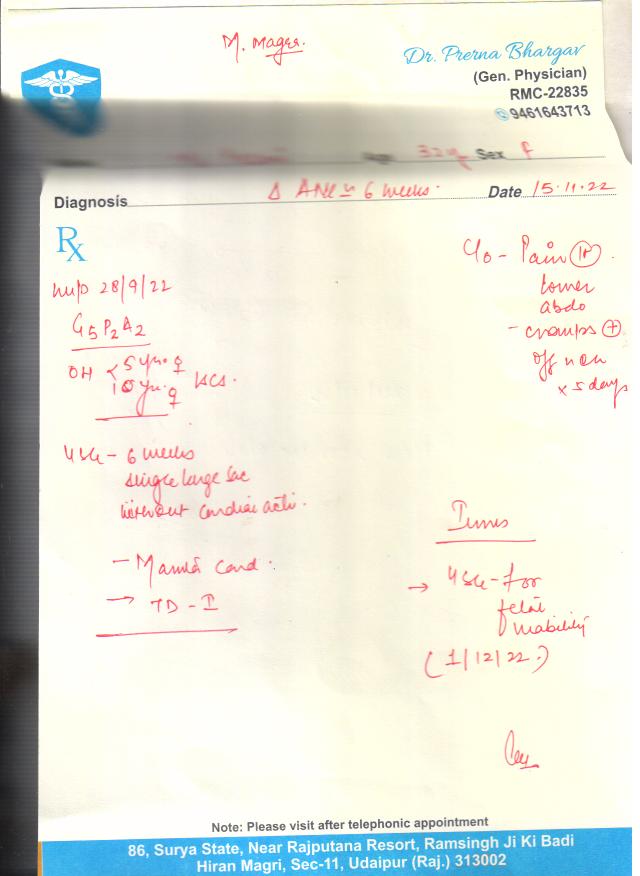 M. Magra.
Dr. Prerna Bhargav
(Gen. Physician)
RMC-22835
9461643713
Age 32 y Sex F
Diagnosis Δ ANC ≃ 6 weeks. Date 15.11.22
Rx
C/o - Pain
lower
abdo
- cramps ⊕
off n on
x 5 days
LMP 28/9/22
G5P2A2
OH < 5 yr. ♀
10 yr. ♀ LSCS.
USG - 6 weeks
single large sac
without cardiac acti.
- Mamta Card.
→ TD - I
→ USG - for
fetal
viability
(1/12/22.)
Note: Please visit after telephonic appointment
86, Surya State, Near Rajputana Resort, Ramsingh Ji Ki Badi
Hiran Magri, Sec-11, Udaipur (Raj.) 313002